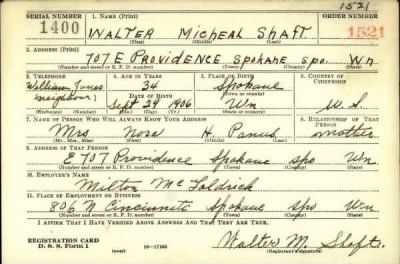 1521
SERIAL NUMBER 1. NAME (Print) ORDER NUMBER
1400 WALTER Micheal Shaft 1521
(First) (Middle) (Last)
2. ADDRESS (Print)
707 E PROVIDENCE Spokane Spo. Wn
(Number and street or R. F. D. number) (Town) (County) (State)
3. TELEPHONE 4. AGE IN YEARS 5. PLACE OF BIRTH 6. COUNTRY OF CITIZENSHIP
William Jones 34 Spokane
(neighbour) DATE OF BIRTH
Sept 29 1906 Wn U. S.
7. NAME OF PERSON WHO WILL ALWAYS KNOW YOUR ADDRESS 8. RELATIONSHIP OF THAT PERSON
Mrs Nora H. mother
(Mr., Mrs., Miss) (First) (Middle) (Last)
9. ADDRESS OF THAT PERSON
E 707 Providence Spokane Spo Wn
(Number and street or R. F. D. number) (Town) (County) (State)
10. EMPLOYER'S NAME
Milton Mc Goldrick
11. PLACE OF EMPLOYMENT OR BUSINESS
806 N Cincinnati Spokane Spo Wn
(Number and street or R. F. D. number) (Town) (County) (State)
I AFFIRM THAT I HAVE VERIFIED ABOVE ANSWERS AND THAT THEY ARE TRUE.
REGISTRATION CARD
D. S. S. Form 1 (over) 16—17105 Walter M. Shaft.
(Registrant's signature)